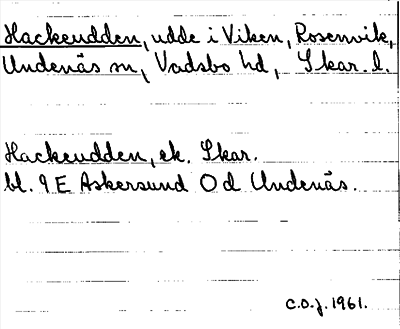 Hackeudden, udde i Viken, Rosenvik,
Undenäs sn, Vadsbo hd, Skar. l.
Hackeudden, ek. Skar.
bl. 9 E Askersund Od Undenäs.
C.O.J. 1961.